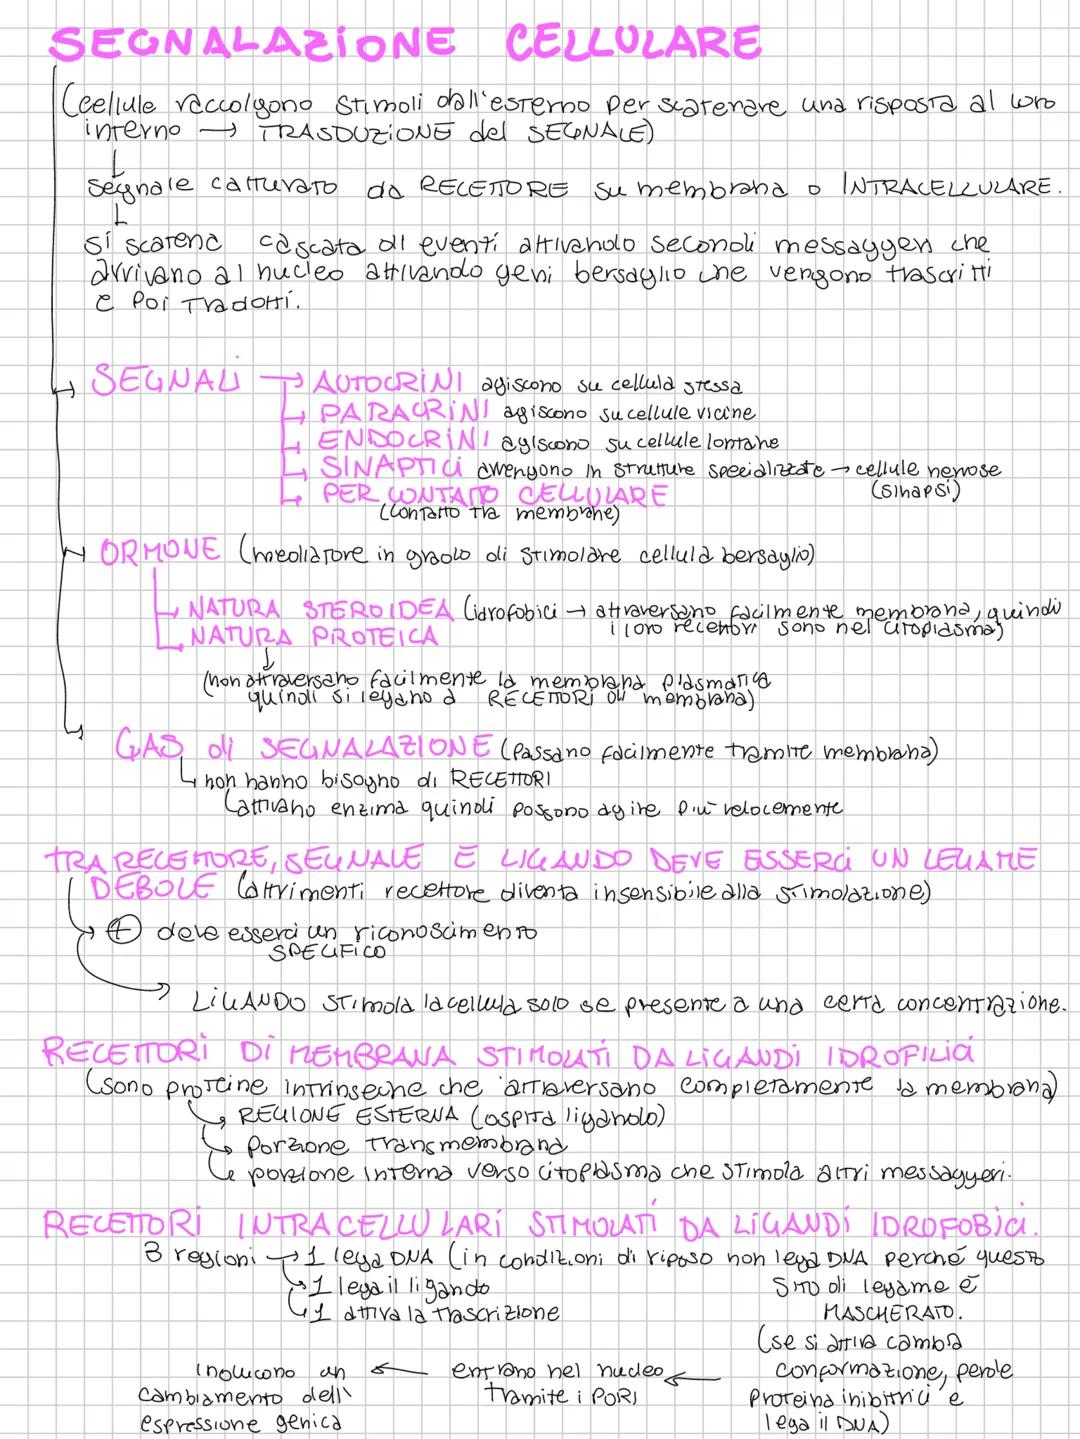 SEGNALAZIONE CELLULARE
(cellule raccolgono stimoli dall'esterno per scatenare una risposta al loro
interno → TRASDUZIONE del SEGNALE)
segnale catturato da RECETTORE su membrana o INTRACELLULARE.
si scatena cascata di eventi attivando secondi messaggeri che
arrivano al nucleo attivando geni bersaglio che vengono trascritti
e poi tradotti.
SEGNALI → AUTOCRINI agiscono su cellula stessa
PARACRINI agiscono su cellule vicine
ENDOCRINI agiscono su cellule lontane
SINAPTICI avvengono in strutture specializzate → cellule nervose
(sinapsi)
PER CONTATTO CELLULARE
(contatto tra membrane)
ORMONE (mediatore in grado di stimolare cellula bersaglio)
NATURA STEROIDEA (idrofobici → attraversano facilmente membrana, quindi
i loro recettori sono nel citoplasma)
NATURA PROTEICA
(non attraversano facilmente la membrana plasmatica
quindi si legano a RECETTORI di membrana)
GAS di SEGNALAZIONE (passano facilmente tramite membrana)
non hanno bisogno di RECETTORI
(attivano enzima quindi possono agire più velocemente
TRA RECETTORE, SEGNALE E LIGANDO DEVE ESSERCI UN LEGAME
DEBOLE (altrimenti recettore diventa insensibile alla stimolazione)
+ deve esserci un riconoscimento
SPECIFICO
LIGANDO stimola la cellula solo se presente a una certa concentrazione.
RECETTORI DI MEMBRANA STIMOLATI DA LIGANDI IDROFILICI
(sono proteine intrinseche che attraversano completamente la membrana)
REGIONE ESTERNA (ospita ligando)
porzione transmembrana
porzione interna verso citoplasma che stimola altri messaggeri.
RECETTORI INTRACELLULARI STIMOLATI DA LIGANDI IDROFOBICI.
3 regioni → 1 lega DNA (in condizioni di riposo non lega DNA perché questo
1 lega il ligando sito di legame è
1 attiva la trascrizione MASCHERATO.
(se si attiva cambia
inducono un ← entrano nel nucleo ← conformazione, perde
cambiamento dell' tramite i PORI proteina inibitrice e
espressione genica lega il DNA)